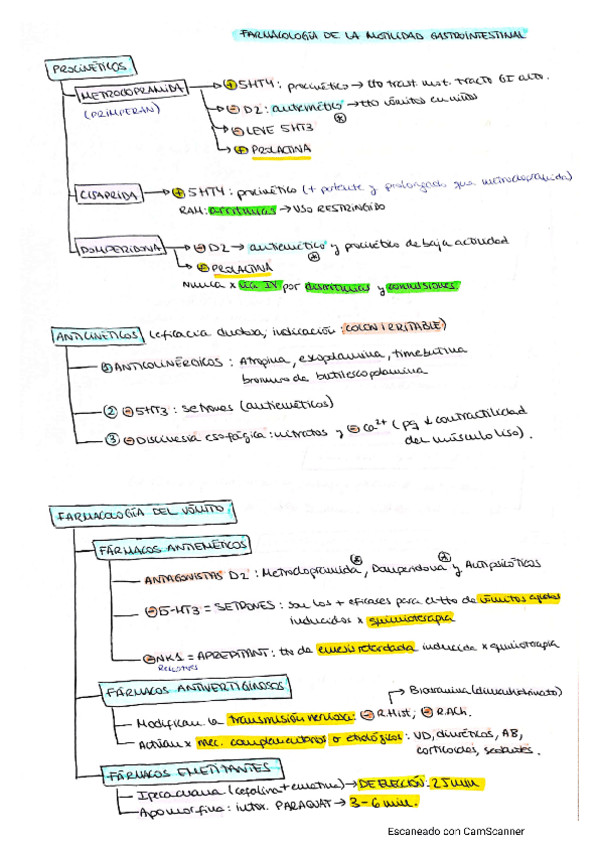 FARMACOLOGÍA DE LA MOTILIDAD GASTROINTESTINAL
PROCINÉTICOS
METOCLOPRAMIDA
(PRIMPERAN)
⊕ 5HT4: procinético → tto trast. mot. tracto GI alto.
⊖ D2: antiemético → tto vómitos en niños
⊖ LEVE 5HT3
⊕ PROLACTINA
CISAPRIDA → ⊕ 5HT4: procinético (+ potente y prolongado que metoclopramida)
RAM: arritmias → USO RESTRINGIDO
DOMPERIDONA → ⊖ D2 → antiemético y procinético de baja actividad
⊕ PROLACTINA
Nunca x vía IV por disritmias y convulsiones.
ANTICINÉTICOS (eficacia dudosa, indicación: COLON IRRITABLE)
① ANTICOLINÉRGICOS: Atropina, escopolamina, trimebutina
bromuro de butilescopolamina
② ⊖ 5HT3: setrones (antieméticos)
③ ⊖ Discinesia esofágica: nitratos y ⊖ Ca2+ (pq ↓ contractilidad
del músculo liso).
FARMACOLOGÍA DEL VÓMITO
FÁRMACOS ANTIEMÉTICOS
ANTAGONISTAS D2: Metoclopramida, Domperidona y Antipsicóticos
⊖ 5-HT3 = SETRONES: son los + eficaces para el tto de vómitos agudos
inducidos x quimioterapia
⊖ NK1 = APREPITANT: tto de emesis retardada inducida x quimioterapia
FÁRMACOS ANTIVERTIGINOSOS
→ Biodramina (dimenhidrinato)
Modifican la transmisión nerviosa: ⊖ R.Hist; ⊖ R.ACh.
Actúan x mec. complementarios o etiológicos: VD, diuréticos, AB,
corticoides, sedantes.
FÁRMACOS EMETIZANTES
Ipecacuana (cefalina + emetina) → DE ELECCIÓN. 25 min
Apomorfina: intox. PARAQUAT → 3-6 min.
Escaneado con CamScanner